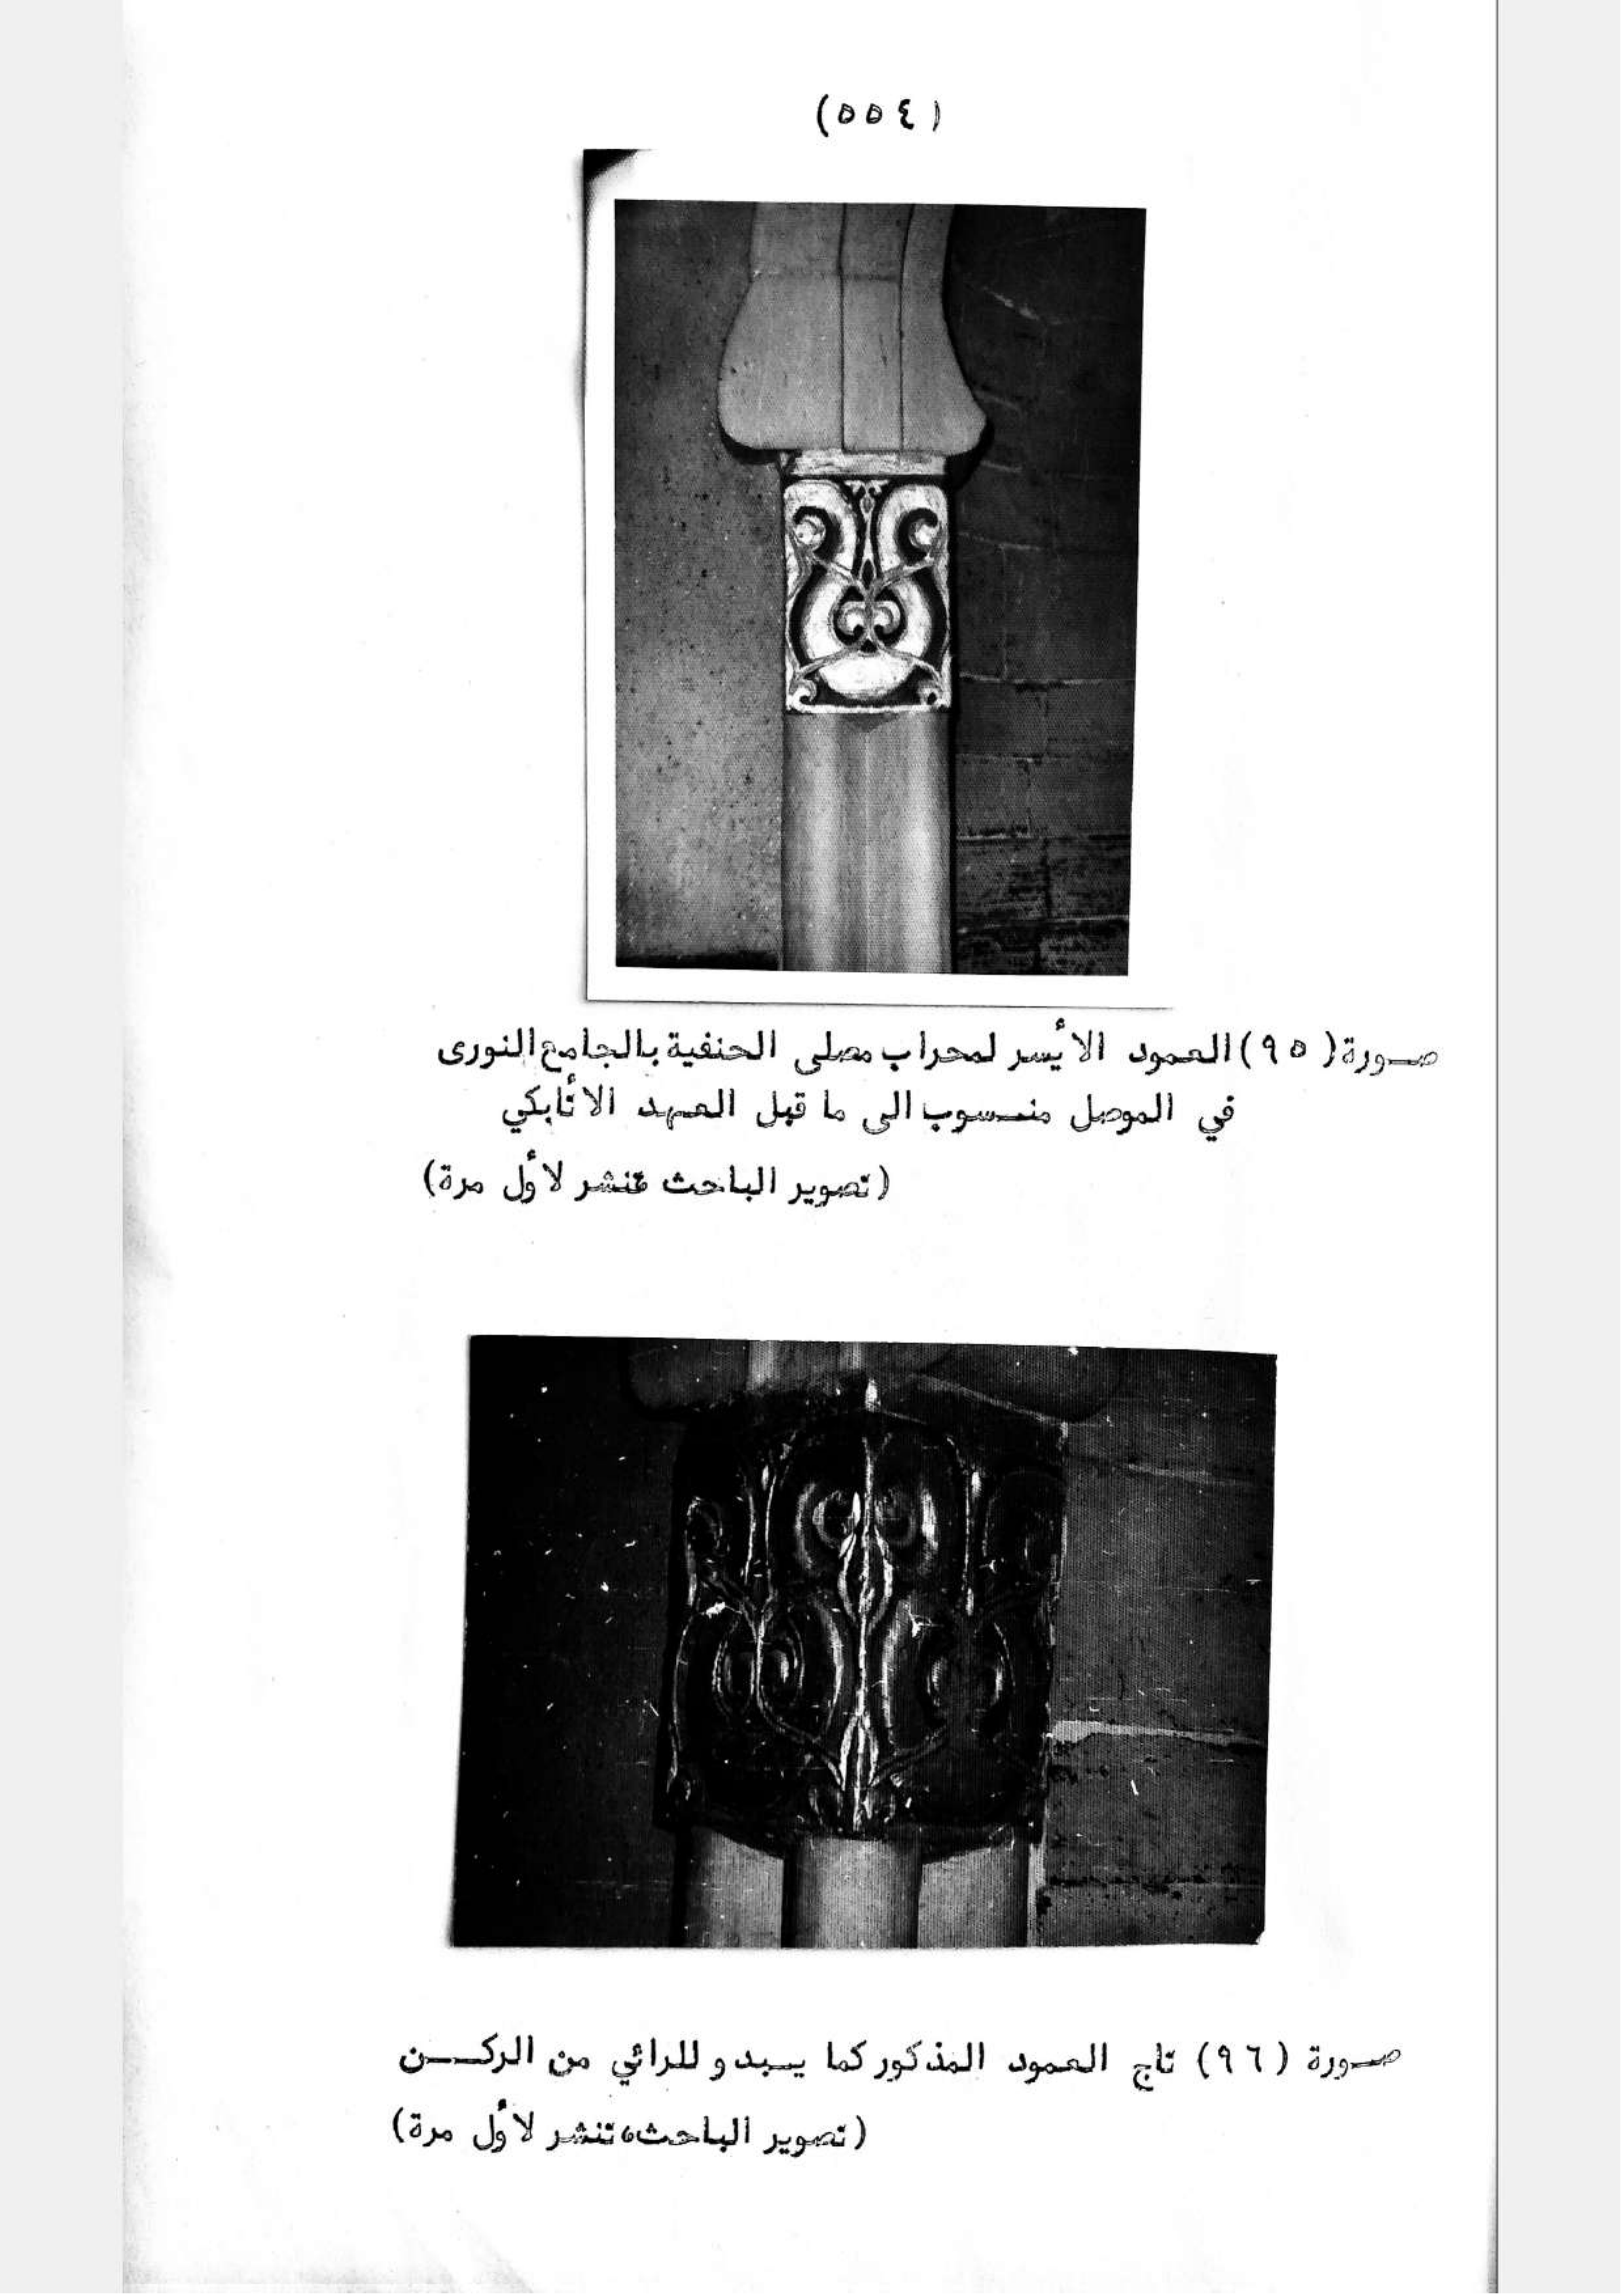 (٥٥٤)
صورة (٩٥) العمود الأيسر لمحراب مصلى الحنفية بالجامع النورى
في الموصل منسوب الى ما قبل العهد الأتابكي
(تصوير الباحث تنشر لأول مرة)
صورة (٩٦) تاج العمود المذكور كما يبدو للرائي من الركن
(تصوير الباحث، تنشر لأول مرة)